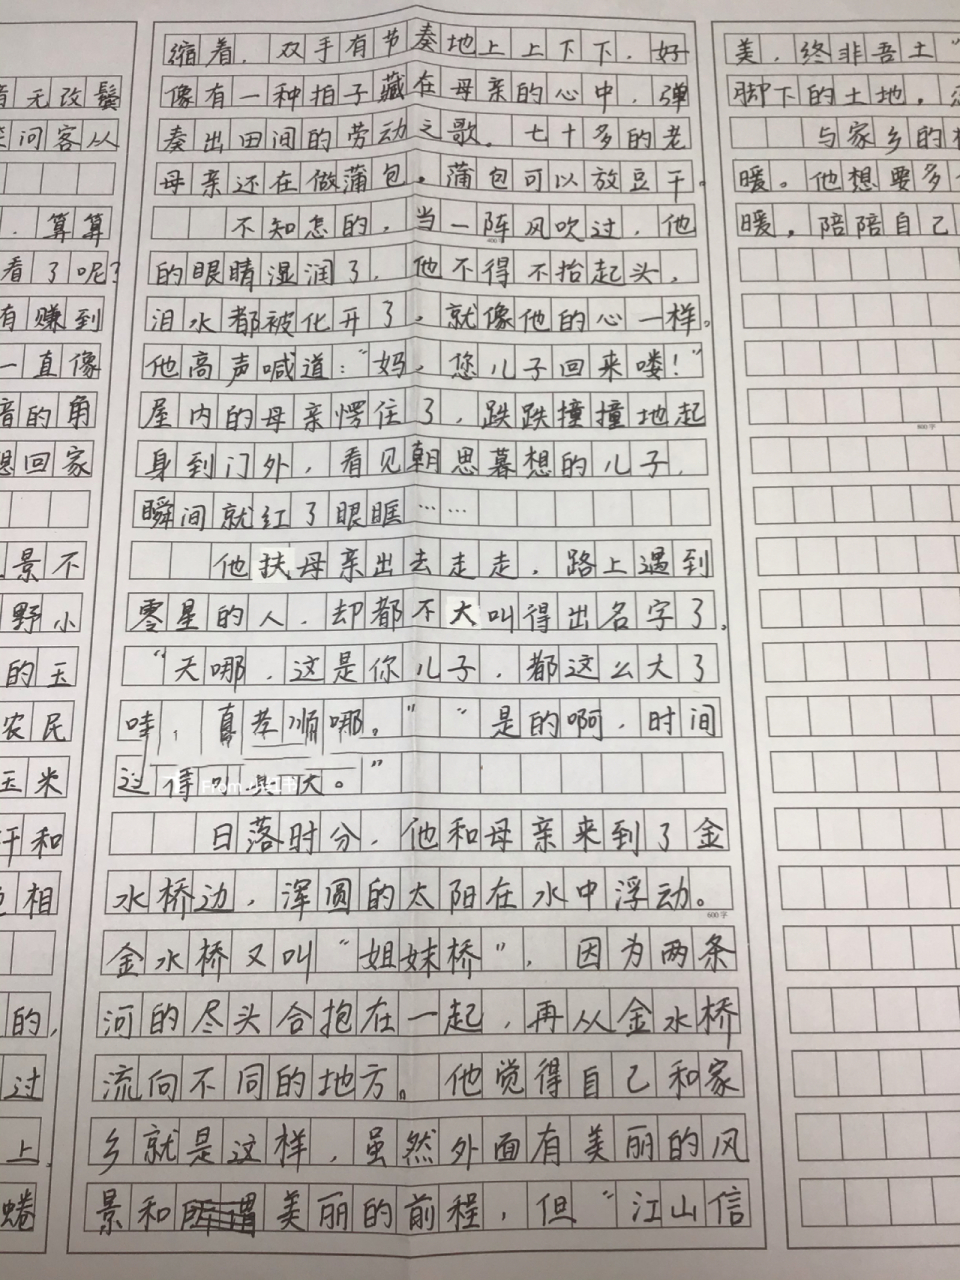 无改鬓
问客从
算算
看了呢?
有赚到
一直像
的角
想回家
景不
野小
的玉
农民
玉米
汗和
相
的,
过
上.
蜷
缩着. 双手有节奏地上上下下. 好
像有一种拍子藏在母亲的心中. 弹
奏出田间的劳动之歌. 七十多的老
母亲还在做蒲包. 蒲包可以放豆干.
不知怎的, 当一阵风吹过, 他
400字
的眼睛湿润了. 他不得不抬起头.
泪水都被化开了. 就像他的心一样。
他高声喊道:“妈, 您儿子回来喽!”
屋内的母亲愣住了, 跌跌撞撞地起
身到门外, 看见朝思暮想的儿子.
瞬间就红了眼眶……
他扶母亲出去走走. 路上遇到
零星的人. 却都不大叫得出名字了.
“天哪. 这是你儿子. 都这么大了
哇, 真孝顺哪。”“是的啊, 时间
过得 。”
日落时分. 他和母亲来到了金
水桥边, 浑圆的太阳在水中浮动。
600字
金水桥又叫“姐妹桥”, 因为两条
河的尽头合抱在一起, 再从金水桥
流向不同的地方。他觉得自己和家
乡就是这样, 虽然外面有美丽的风
景和美丽的前程, 但“江山信
美, 终非吾土”
脚下的土地,
与家乡的
暖。他想要多
暖, 陪陪自己
800字